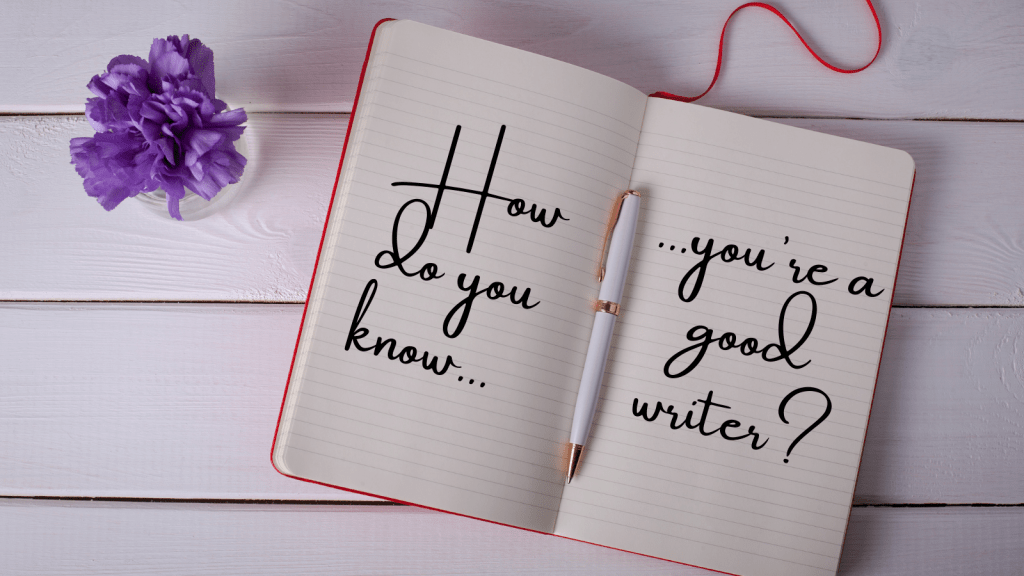 How
do you
know...
...you're a
good
writer?